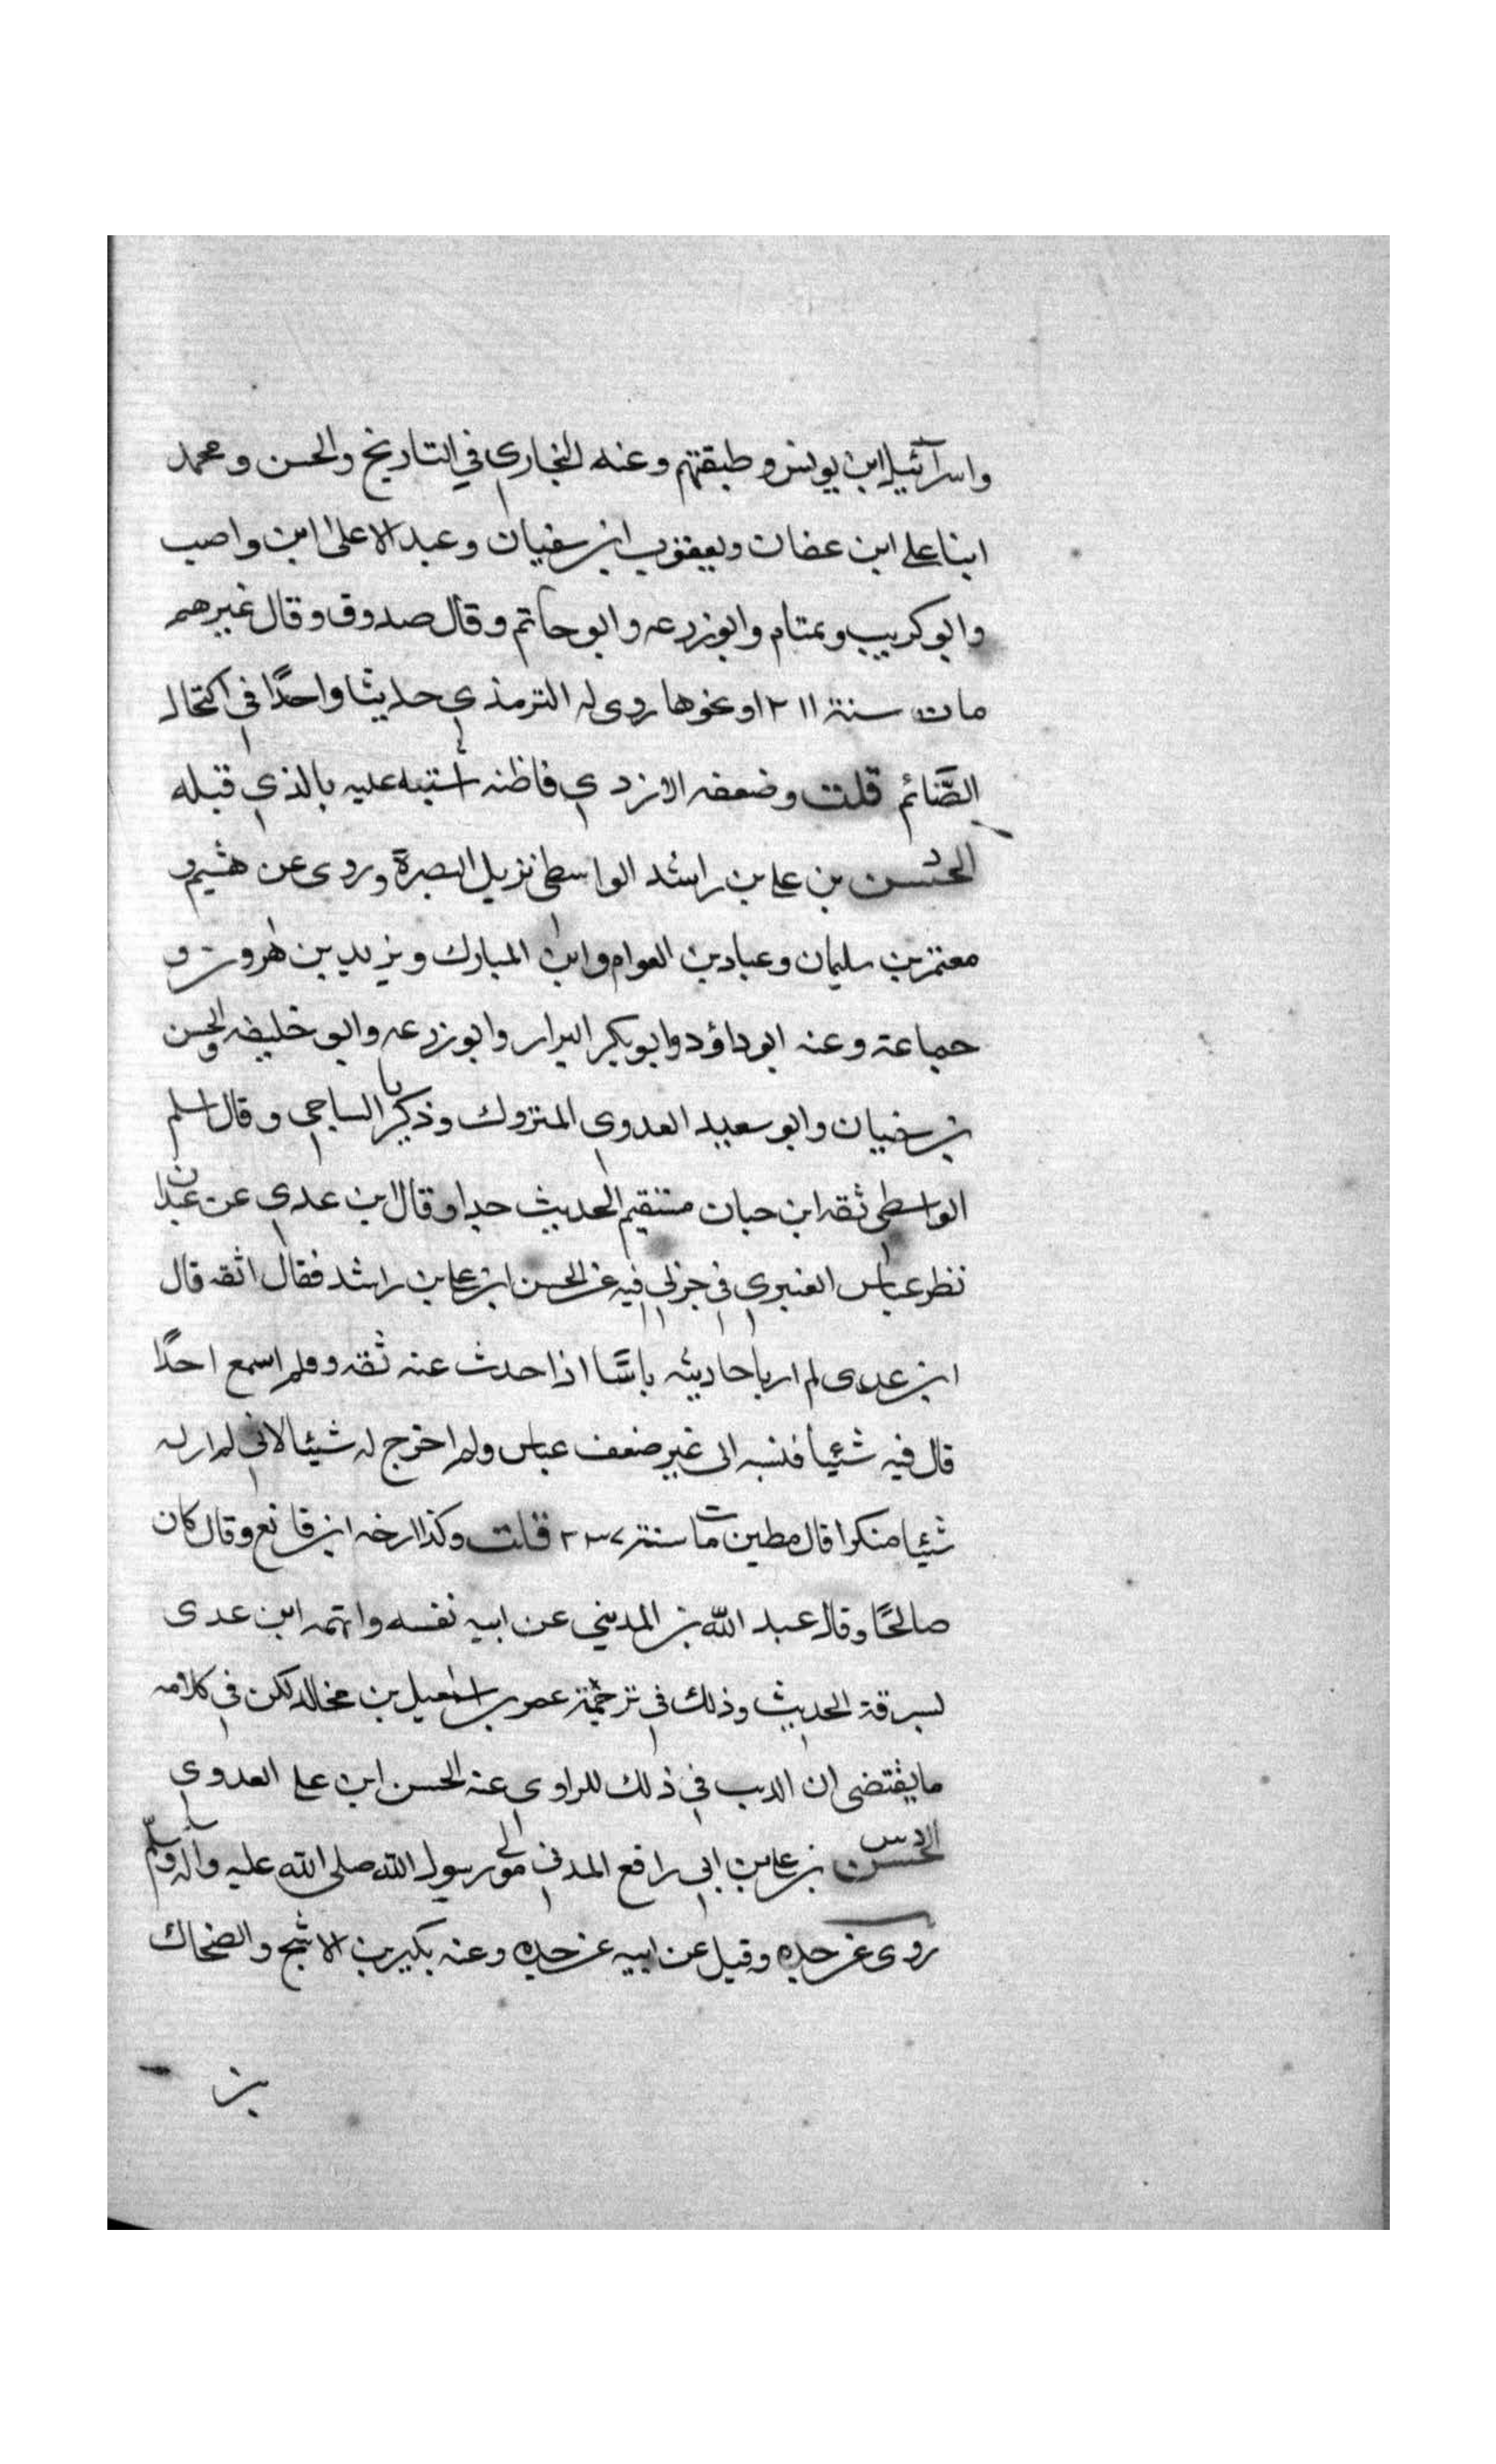 واسرآئيل ابن يونس وطبقتهم وعنه البخاري في التاريخ والحسن ومحمد
ابنا علي ابن عفان ويعقوب ابن سفيان وعبد الاعلى ابن واصب
وابو كريب وتمتام وابو زرعه وابو حاتم وقال صدوق وقال غيرهم
مات سنة ٢١١ او نحوها روى له الترمذي حديثا واحدًا في اكتحال
الصَّائم قلت وضعفه الازدي فاظنه اشتبه عليه بالذي قبله
د الحسن بن علي بن راشد الواسطي نزيل البصرة وروى عن هشيم و
معتمر بن سليمان وعباد بن العوام وابن المبارك ويزيد بن هرون و
جماعة وعنه ابو داؤد وابو بكر البزار وابو زرعه وابو خليفه والحسن
بن سفيان وابو سعيد العدوي المتروك وذكريا الساجي وقال اسلم
الواسطي ثقه ابن حبان مستقيم الحديث جدا وقال ابن عدي عن عبدان
نظر عباس العنبري في جزلي فيه عن الحسن ابن علي بن راشد فقال اثقه قال
ابن عدى لم ار باحاديثه باسًا اذا حدث عنه ثقه ولم اسمع احدًا
قال فيه شيئا فنسبه الى غير ضعف عباس ولم اخرج له شيئا لاني لم ار له
شيئا منكرا قال مطين مات سنة ٢٣٧ قلت وكذا ارخه ابن قانع وقال كان
صالحًا وقال عبد الله بن المديني عن ابيه نفسه واتهمه ابن عدى
لسرقة الحديث وذلك في ترجمة عمر بن اسمعيل بن مخالد لكن في كلامه
ما يقتضى ان الذنب في ذلك للراوي عنه الحسن ابن علي العدوي
الحسن بن علي بن ابي رافع المدني مولى رسول الله صلى الله عليه واله وسلم
روى عن جده وقيل عن ابيه عن جده وعنه بكير بن الاشج والضحاك
بن